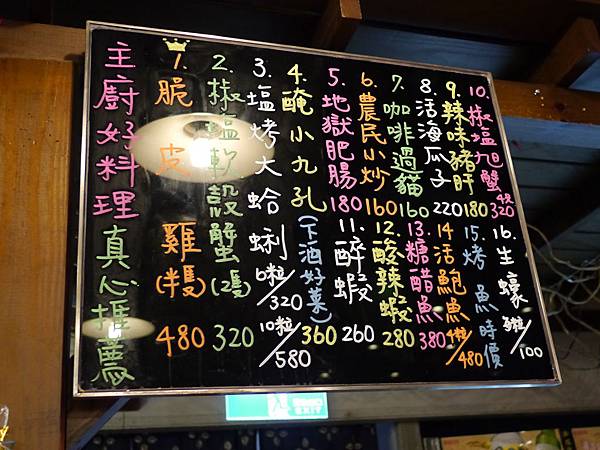 主廚好料理 真心推薦
1. 脆皮雞(半隻) 480
2. 椒塩軟殼蟹(2隻) 320
3. 塩烤大蛤蜊 6粒/320 10粒/580
4. 醃小九孔(下酒好菜) 360
5. 地獄肥腸 180
6. 農民小炒 160
7. 咖啡過貓 160
8. 活海瓜子 220
9. 辣味豬肝 180
10. 椒塩旭蟹 320
11. 醉蝦 260
12. 酸辣蝦 280
13. 糖醋魚 380
14. 活鮑魚 4粒/480
15. 烤魚 時價
16. 生蠔 /100
EXIT